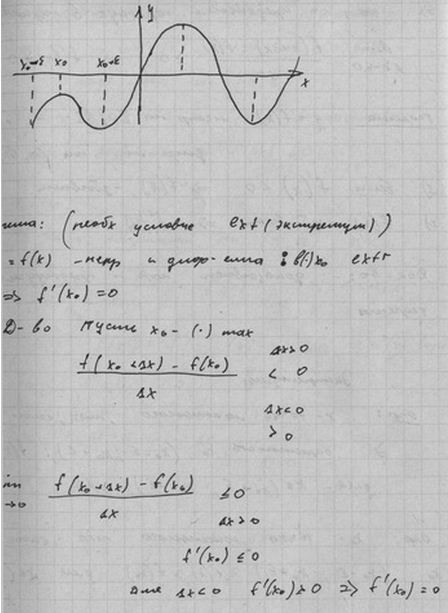 y
x₀-ε x₀ x₀+ε x
(необх условие ext (экстремум))
= f(x) - непр и диф-ема : в(·) x₀ extr
=> f'(x₀) = 0
Д-во Пусть x₀ - (·) max
f(x₀+Δx) - f(x₀) Δx>0
< 0
Δx
Δx<0
> 0
f(x₀+Δx) - f(x₀) ≤ 0
→0
Δx Δx>0
f'(x₀) ≤ 0
Δx<0 f'(x₀) ≥ 0 => f'(x₀) = 0